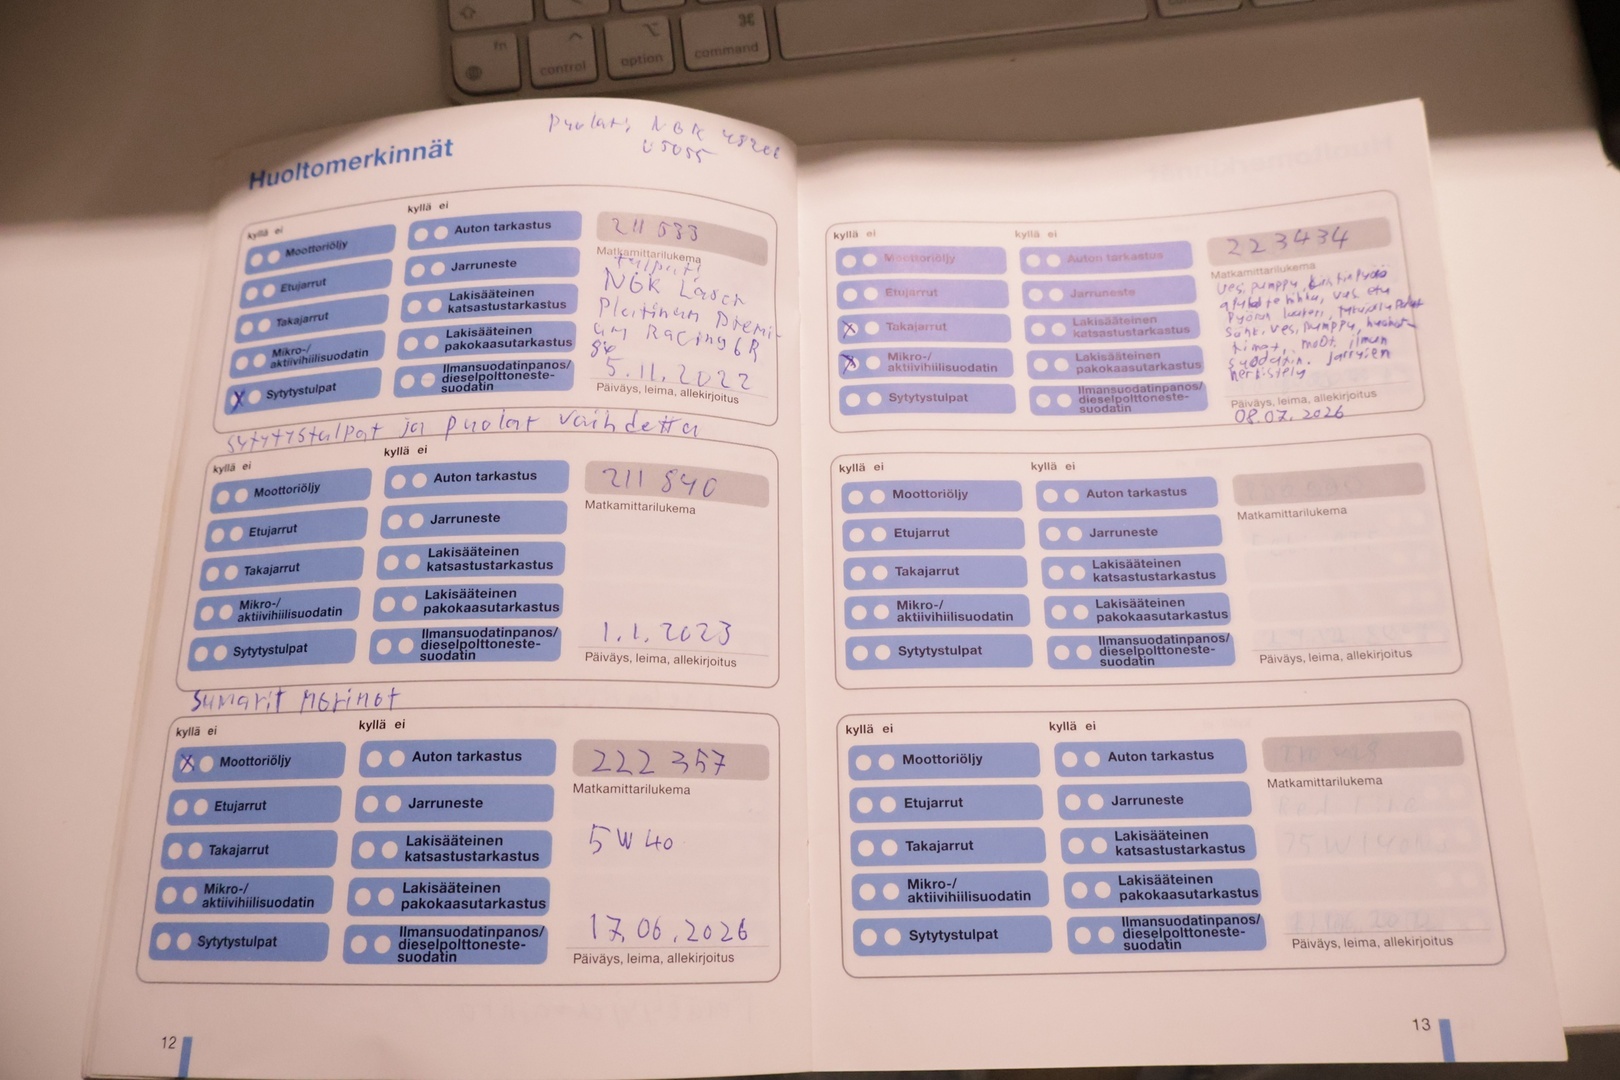 fn
control
option
⌘
command
Huoltomerkinnät
Puolat; NGK
U5055
kyllä ei
Moottoriöljy
Etujarrut
Takajarrut
Mikro-/
aktiivihiilisuodatin
X Sytytystulpat
kyllä ei
Auton tarkastus
Jarruneste
Lakisääteinen
katsastustarkastus
Lakisääteinen
pakokaasutarkastus
Ilmansuodatinpanos/
dieselpolttoneste-
suodatin
211 533
Matkamittarilukema
tulpat;
NGK Laser
Platinum Premi-
um Racing 6R
5.11.2022
Päiväys, leima, allekirjoitus
sytytystulpat ja puolat vaihdettu
kyllä ei
Moottoriöljy
Etujarrut
Takajarrut
Mikro-/
aktiivihiilisuodatin
Sytytystulpat
kyllä ei
Auton tarkastus
Jarruneste
Lakisääteinen
katsastustarkastus
Lakisääteinen
pakokaasutarkastus
Ilmansuodatinpanos/
dieselpolttoneste-
suodatin
211 840
Matkamittarilukema
1.1.2023
Päiväys, leima, allekirjoitus
kyllä ei
X Moottoriöljy
Etujarrut
Takajarrut
Mikro-/
aktiivihiilisuodatin
Sytytystulpat
kyllä ei
Auton tarkastus
Jarruneste
Lakisääteinen
katsastustarkastus
Lakisääteinen
pakokaasutarkastus
Ilmansuodatinpanos/
dieselpolttoneste-
suodatin
222 357
Matkamittarilukema
5W40
17.06.2026
Päiväys, leima, allekirjoitus
12
kyllä ei
Moottoriöljy
Etujarrut
X Takajarrut
X Mikro-/
aktiivihiilisuodatin
Sytytystulpat
kyllä ei
Auton tarkastus
Jarruneste
Lakisääteinen
katsastustarkastus
Lakisääteinen
pakokaasutarkastus
Ilmansuodatinpanos/
dieselpolttoneste-
suodatin
223434
Matkamittarilukema
vesipumppu,
vas. etu
pyörän laakeri,
sähk. vesipumppu,
moot. ilman
suodatin. jarrujen
herkistely
Päiväys, leima, allekirjoitus
08.07.2026
kyllä ei
Moottoriöljy
Etujarrut
Takajarrut
Mikro-/
aktiivihiilisuodatin
Sytytystulpat
kyllä ei
Auton tarkastus
Jarruneste
Lakisääteinen
katsastustarkastus
Lakisääteinen
pakokaasutarkastus
Ilmansuodatinpanos/
dieselpolttoneste-
suodatin
Matkamittarilukema
Päiväys, leima, allekirjoitus
kyllä ei
Moottoriöljy
Etujarrut
Takajarrut
Mikro-/
aktiivihiilisuodatin
Sytytystulpat
kyllä ei
Auton tarkastus
Jarruneste
Lakisääteinen
katsastustarkastus
Lakisääteinen
pakokaasutarkastus
Ilmansuodatinpanos/
dieselpolttoneste-
suodatin
Matkamittarilukema
Päiväys, leima, allekirjoitus
13